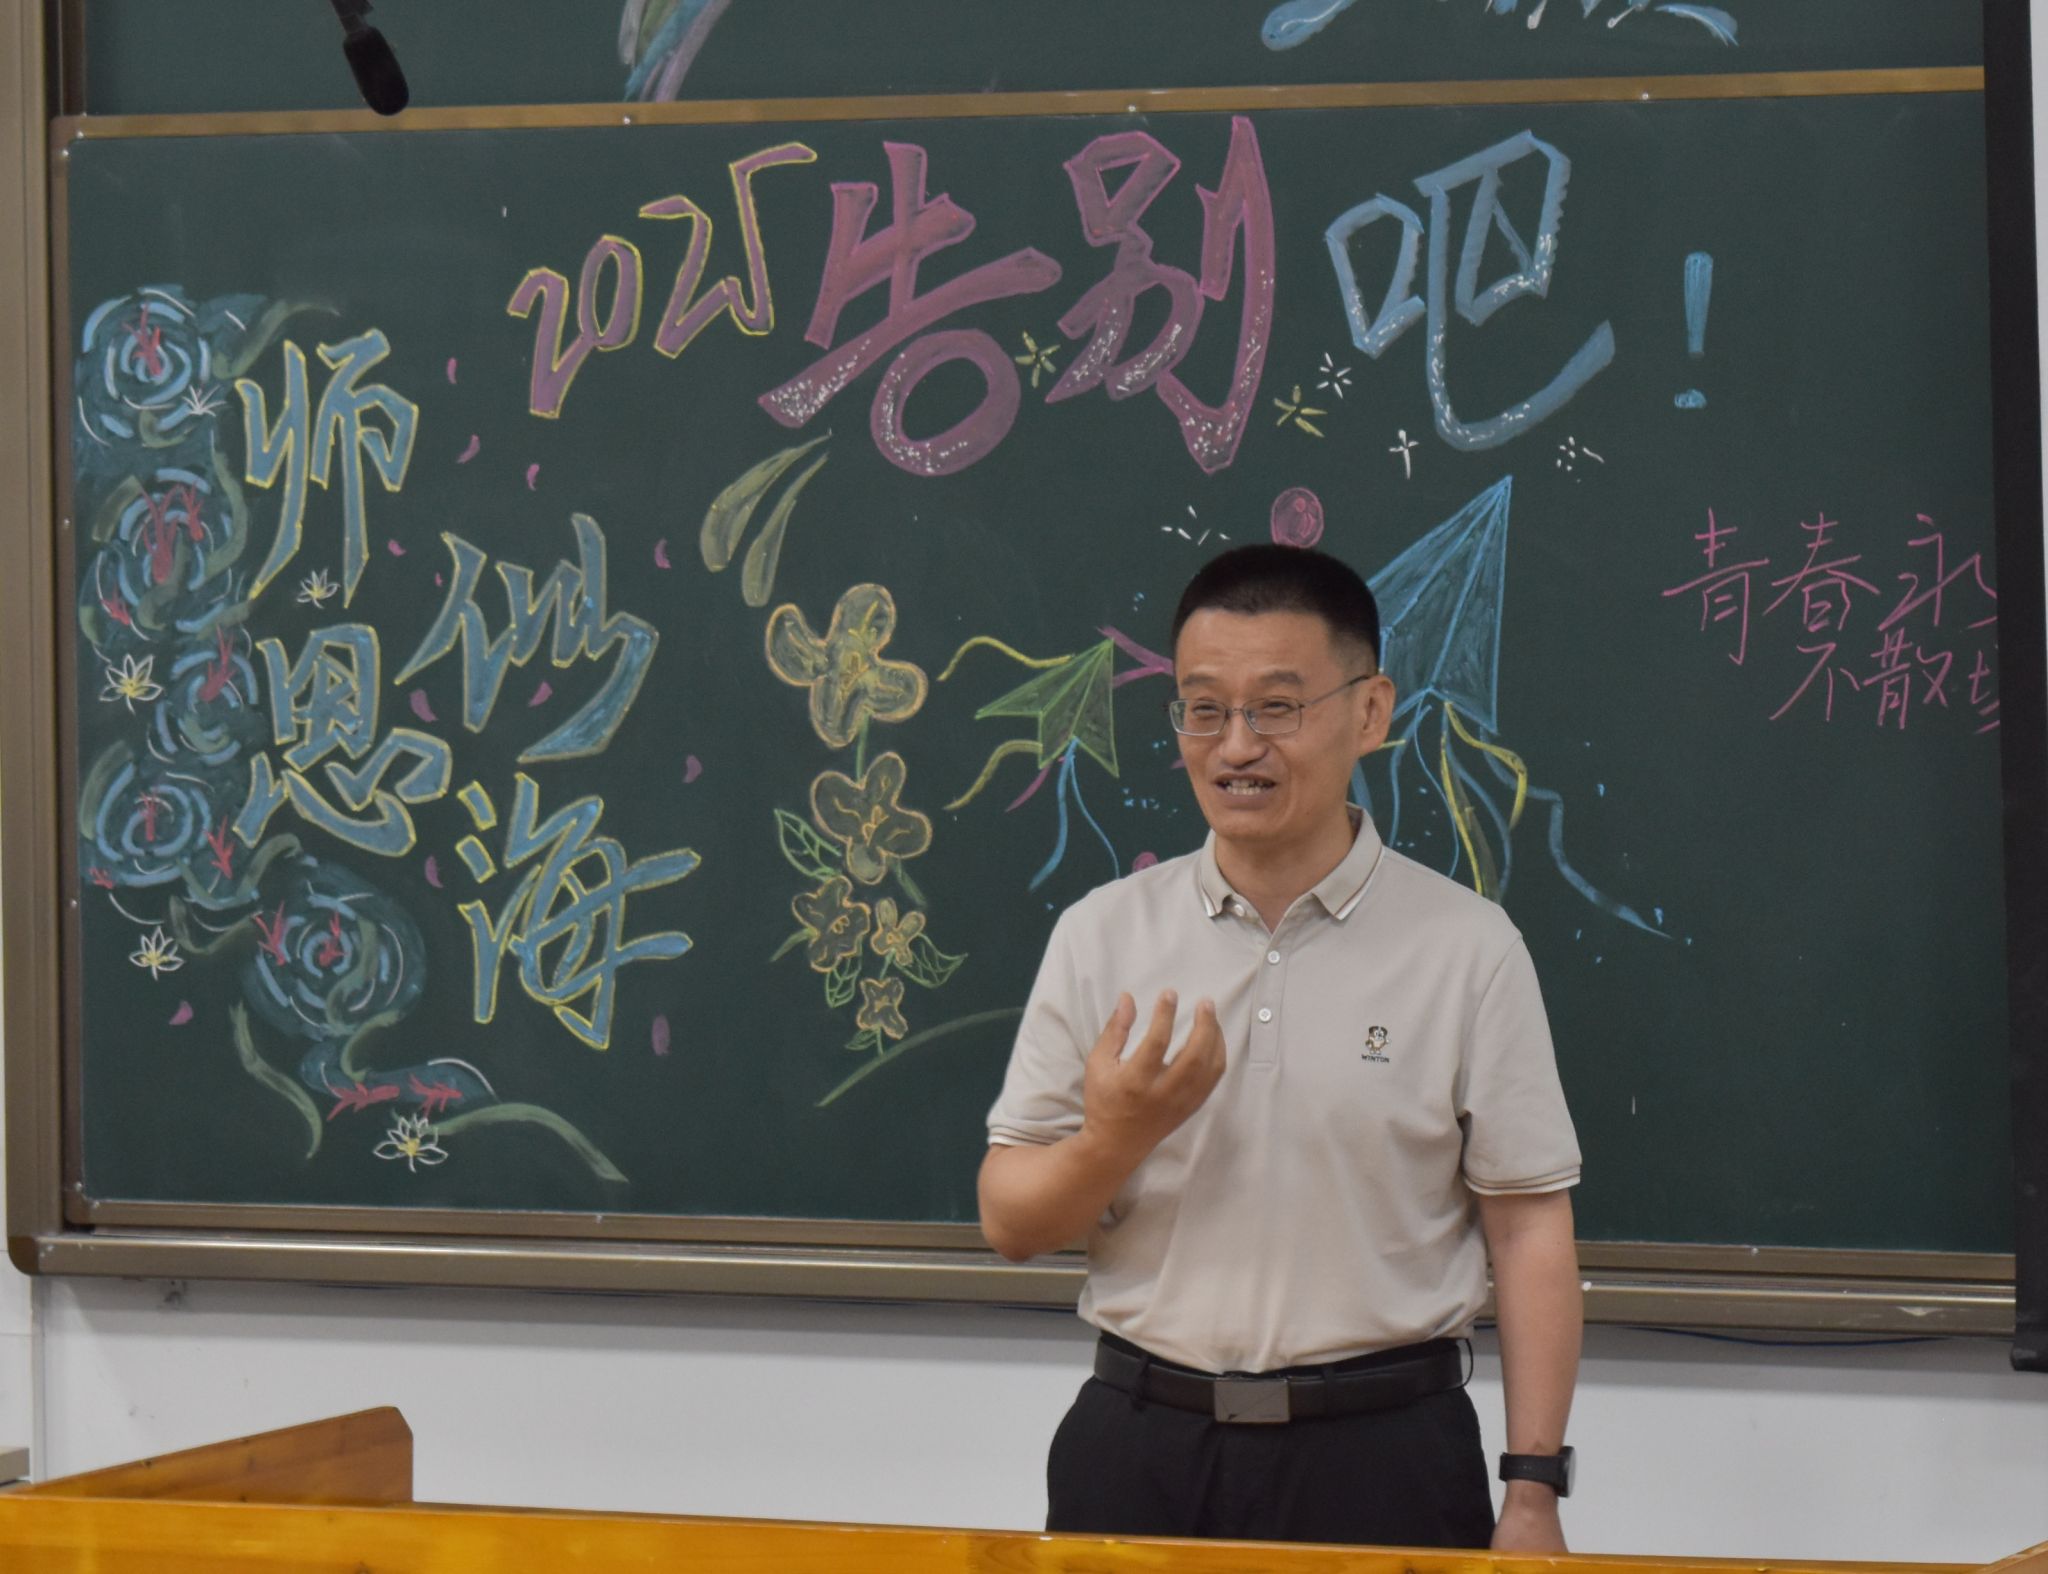 2025告别吧！
师恩似海
青春永
不散场
WINTON